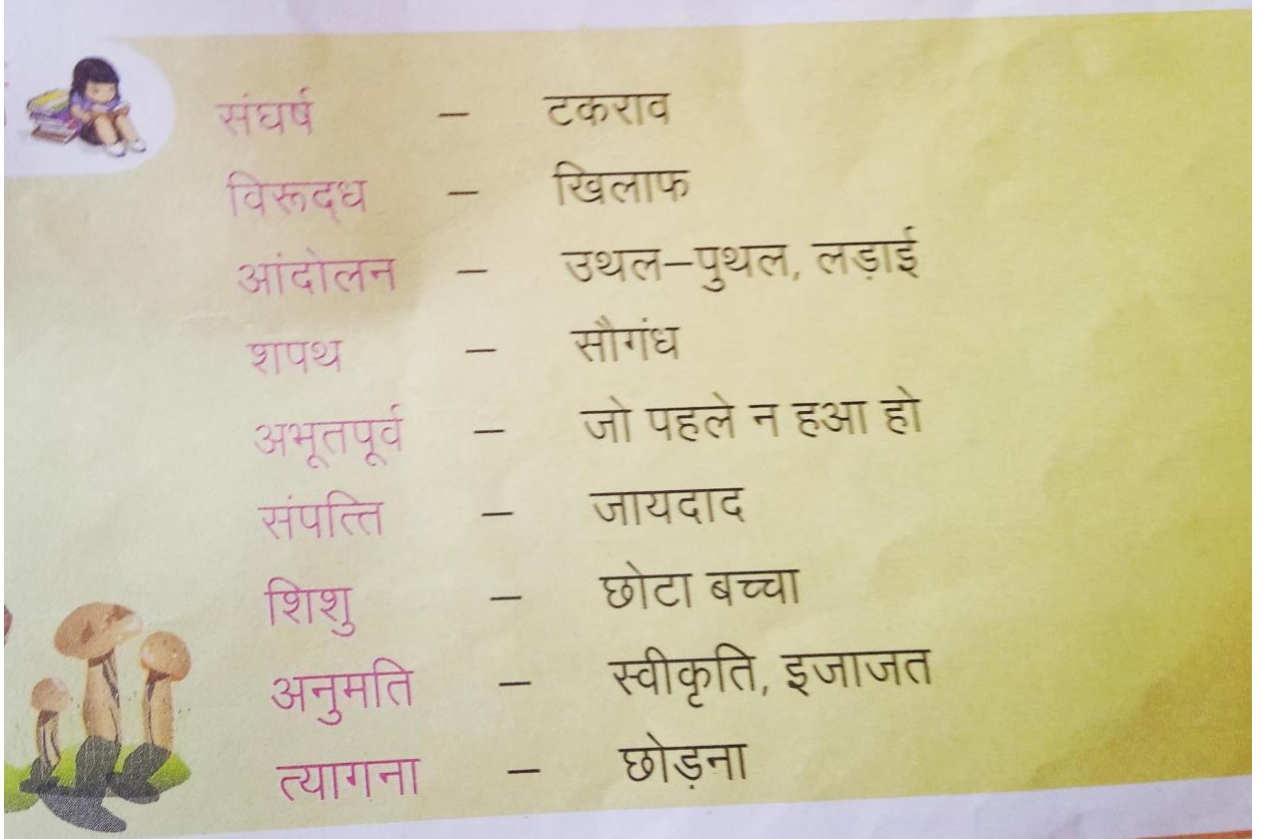 संघर्ष – टकराव
विरूद्ध – खिलाफ
आंदोलन – उथल–पुथल, लड़ाई
शपथ – सौगंध
अभूतपूर्व – जो पहले न हआ हो
संपत्ति – जायदाद
शिशु – छोटा बच्चा
अनुमति – स्वीकृति, इजाजत
त्यागना – छोड़ना